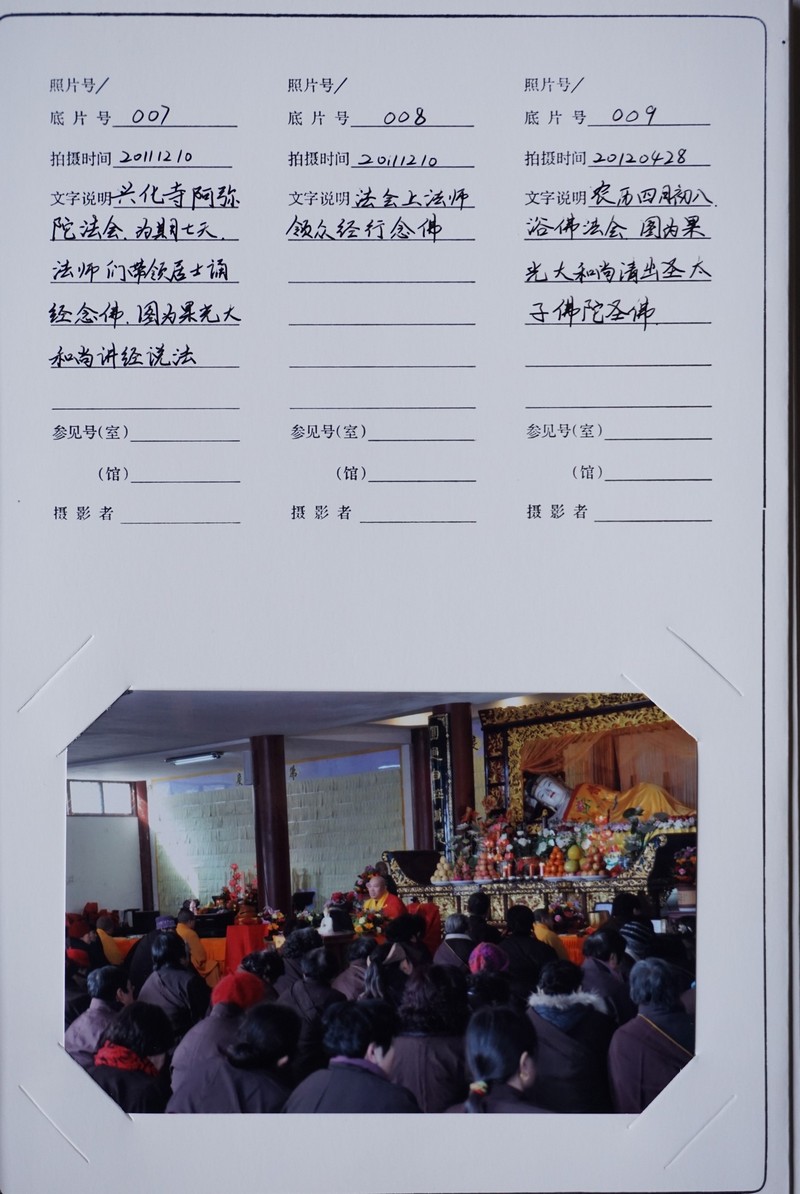 照片号/
底片号 007
拍摄时间 20111210
文字说明 兴化寺阿弥
陀法会.为期七天.
法师们带领居士诵
经念佛.图为果光大
和尚讲经说法
参见号(室)
(馆)
摄影者
照片号/
底片号 008
拍摄时间 20111210
文字说明 法会上法师
领众经行念佛
参见号(室)
(馆)
摄影者
照片号/
底片号 009
拍摄时间 20120428
文字说明 农历四月初八.
浴佛法会 图为果
光大和尚请出圣太
子佛陀圣佛.
参见号(室)
(馆)
摄影者